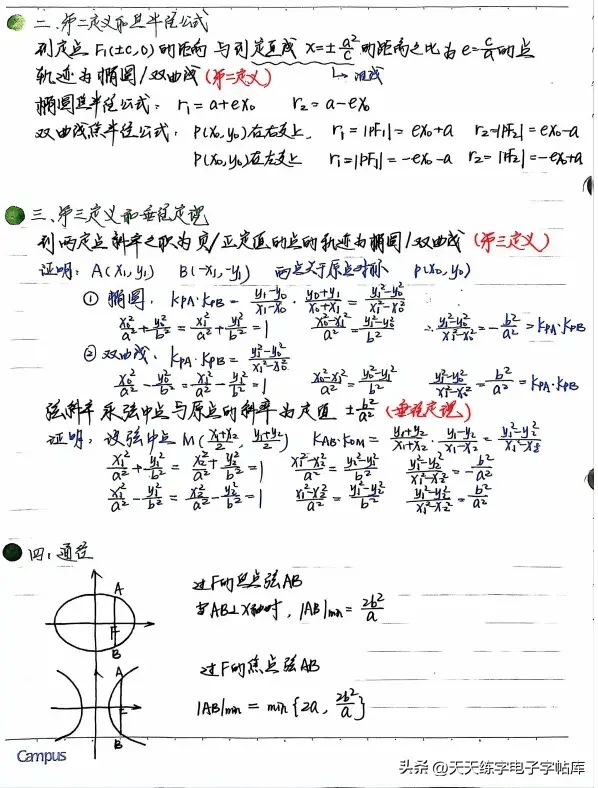 二、第二定义和焦半径公式
到定点 F₁(±c,0) 的距离与到定直线 x=±a²/c 的距离之比为 e=c/a 的点
轨迹为椭圆/双曲线 (第二定义) → 准线
椭圆焦半径公式: r₁=a+ex₀ r₂=a-ex₀
双曲线焦半径公式: P(x₀,y₀)在右支上, r₁=|PF₁|=ex₀+a r₂=|PF₂|=ex₀-a
P(x₀,y₀)在左支上 r₁=|PF₁|=-ex₀-a r₂=|PF₂|=-ex₀+a
三、第三定义和垂径定理
到两定点斜率之积为负/正定值的点的轨迹为椭圆/双曲线 (第三定义)
证明: A(x₁,y₁) B(-x₁,-y₁) 两点关于原点对称 P(x₀,y₀)
① 椭圆. KPA·KPB = (y₁-y₀)/(x₁-x₀) · (y₀+y₁)/(x₀+x₁) = (y₁²-y₀²)/(x₁²-x₀²)
x₀²/a²+y₀²/b²=x₁²/a²+y₁²/b²=1 (x₀²-x₁²)/a²=(y₁²-y₀²)/b² ∴(y₁²-y₀²)/(x₁²-x₀²)=-b²/a²=KPA·KPB
② 双曲线. KPA·KPB=(y₁²-y₀²)/(x₁²-x₀²)
x₀²/a²-y₀²/b²=x₁²/a²-y₁²/b²=1 (x₀²-x₁²)/a²=(y₀²-y₁²)/b² (y₁²-y₀²)/(x₁²-x₀²)=b²/a²=KPA·KPB
弦斜率乘弦中点与原点的斜率为定值 ±b²/a² (垂径定理)
证明: 设弦中点 M((x₁+x₂)/2, (y₁+y₂)/2) KAB·KOM=(y₁+y₂)/(x₁+x₂)·(y₁-y₂)/(x₁-x₂)=(y₁²-y₂²)/(x₁²-x₂²)
x₁²/a²+y₁²/b²=x₂²/a²+y₂²/b²=1 (x₁²-x₂²)/a²=(y₂²-y₁²)/b² (y₁²-y₂²)/(x₁²-x₂²)=-b²/a²
x₁²/a²-y₁²/b²=x₂²/a²-y₂²/b²=1 (x₁²-x₂²)/a²=(y₁²-y₂²)/b² (y₁²-y₂²)/(x₁²-x₂²)=b²/a²
四: 通径
A
F
B
过F的焦点弦AB
当AB⊥x轴时, |AB|min=2b²/a
A
F
B
过F的焦点弦AB
|AB|min=min{2a, 2b²/a}
Campus
头条 @天天练字电子字帖库